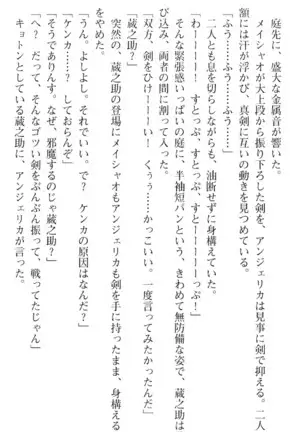 庭先に、盛大な金属音が響いた。
メイシャオが大上段から振り下ろした剣を、アンジェリカは見事に剣で抑える。二人
額には汗が浮かび、真剣に互いの動きを見つめている。
「ふう……ふう……ふう……」
二人とも息を切らしながらも、油断せずに身構えていた。
「わーーーー！　すとっぷ、すとっぷ、すとーーーーっぷ！」
そんな緊張感いっぱいの庭に、半袖短パンという、きわめて無防備な姿で、蔵之助は
び込み、両者の間に割って入った。
「双方、剣をひけーーい！　くぅ……かっこいい。一度言ってみたかったんだなぁ」
「蔵之助？」
突然の、蔵之助の登場にメイシャオもアンジェリカも剣を手に持ったまま、身構える
をやめた。
「うん。よしよし。それでいい。で？　ケンカの原因はなんだ？」
「ケンカ……？　しておらんぞ」
「そうでありんす。なぜ、邪魔するのじゃ蔵之助？」
「へ？　だって、そんなゴツい剣をぶんぶん振って、戦ってたじゃん」
キョトンとしている蔵之助に、アンジェリカが言った。